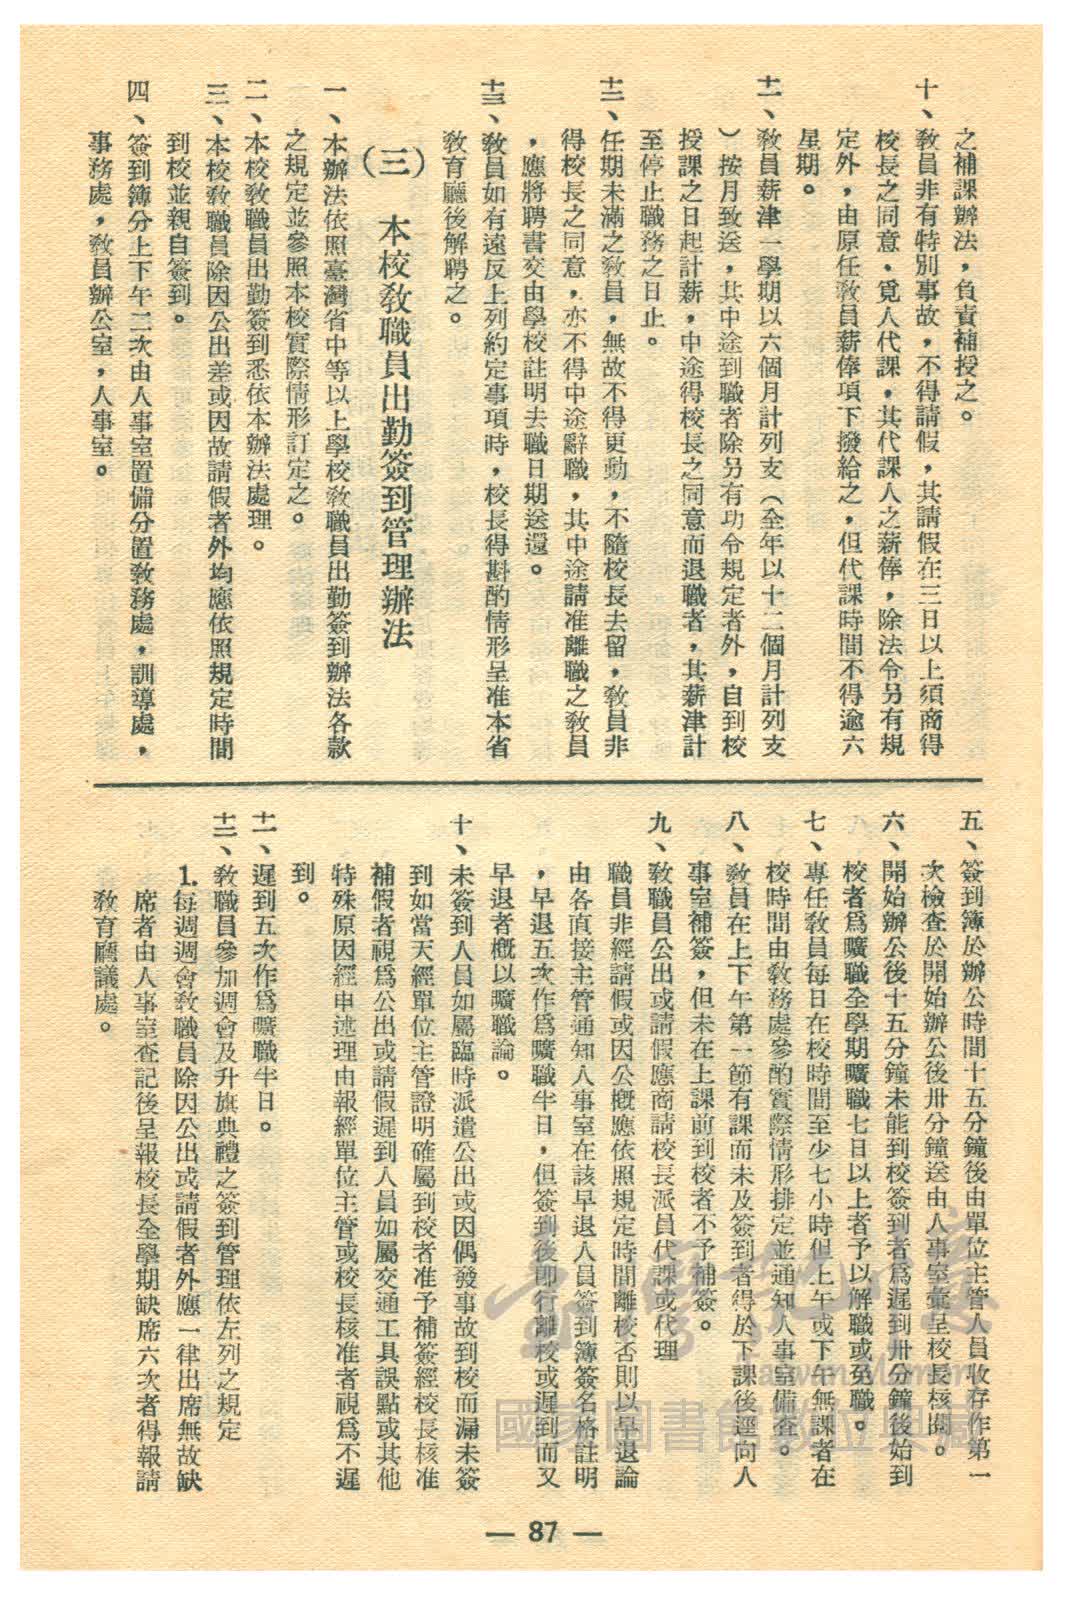 之補課辦法，負責補授之。
十、教員非有特別事故，不得請假，其請假在三日以上須商得
校長之同意，覓人代課，其代課人之薪俸，除法令另有規
定外，由原任教員薪俸項下撥給之，但代課時間不得逾六
星期。
十一、教員薪津一學期以六個月計列支（全年以十二個月計列支
）按月致送，其中途到職者除另有功令規定者外，自到校
授課之日起計薪，中途得校長之同意而退職者，其薪津計
至停止職務之日止。
十二、任期未滿之教員，無故不得更動，不隨校長去留，教員非
得校長之同意，亦不得中途辭職，其中途請准離職之教員
，應將聘書交由學校註明去職日期送還。
十三、教員如有違反上列約定事項時，校長得斟酌情形呈准本省
教育廳後解聘之。
（三）　本校教職員出勤簽到管理辦法
一、本辦法依照臺灣省中等以上學校教職員出勤簽到辦法各款
之規定並參照本校實際情形訂定之。
二、本校教職員出勤簽到悉依本辦法處理。
三、本校教職員除因公出差或因故請假者外均應依照規定時間
到校並親自簽到。
四、簽到簿分上下午二次由人事室置備分置教務處，訓導處，
事務處，教員辦公室，人事室。
五、簽到簿於辦公時間十五分鐘後由單位主管人員收存作第一
次檢查於開始辦公後卅分鐘送由人事室彙呈校長核閱。
六、開始辦公後十五分鐘未能到校簽到者爲遲到卅分鐘後始到
校者爲曠職全學期曠職七日以上者予以解職或免職。
七、專任教員每日在校時間至少七小時但上午或下午無課者在
校時間由教務處參酌實際情形排定並通知人事室備查。
八、教員在上下午第一節有課而未及簽到者得於下課後逕向人
事室補簽，但未在上課前到校者不予補簽。
九、教職員公出或請假應商請校長派員代課或代理
職員非經請假或因公概應依照規定時間離校否則以早退論
由各直接主管通知人事室在該早退人員簽到簿簽名格註明
，早退五次作爲曠職半日，但簽到後即行離校或遲到而又
早退者概以曠職論。
十、未簽到人員如屬臨時派遣公出或因偶發事故到校而漏未簽
到如當天經單位主管證明確屬到校者准予補簽經校長核准
補假者視爲公出或請假遲到人員如屬交通工具誤點或其他
特殊原因經申述理由報經單位主管或校長核准者視爲不遲
到。
十一、遲到五次作爲曠職半日。
十二、教職員參加週會及升旗典禮之簽到管理依左列之規定
1.每週週會教職員除因公出或請假者外應一律出席無故缺
席者由人事室查記後呈報校長全學期缺席六次者得報請
教育廳議處。
— 87 —
臺灣記憶
Taiwan Memory
國家圖書館數位典藏